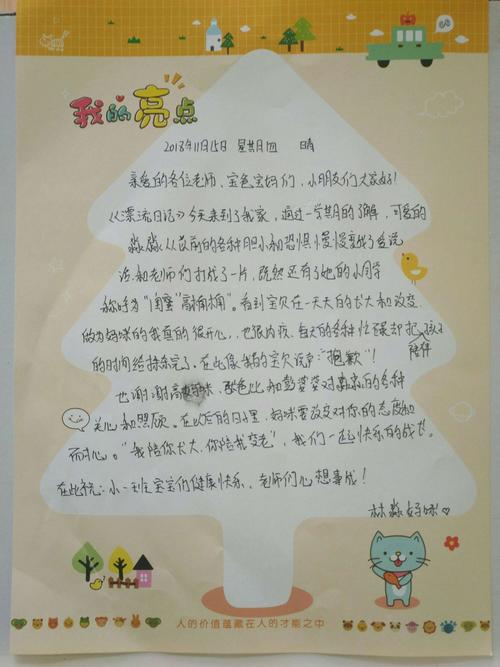 我的亮点
2018年11月15日 星期四 晴
亲爱的各位老师、宝爸宝妈们，小朋友们大家好！
《漂流日记》今天来到了我家，通过一学期的了解，可爱的
淼淼从以前的各种胆小和恐惧慢慢变成了会说
话和老师们打成了一片，既然还有了她的小同学
称呼为"闺蜜"高楠楠"。看到宝贝在一天天的长大和改变，
做为妈咪的我真的很开心，也很内疚，每天的各种忙碌却把孩子
的时间给抹杀完了。在此像我的宝贝说声："抱歉"！
陪伴
也谢谢高老师、和彭婆婆对淼淼的各种
关心和照顾。在以后的日子里，妈咪要改变对你的态度和
耐心。"我陪你长大，你陪我变老"，我们一起快乐的成长。
在此祝：小一班宝宝们健康快乐，老师们心想事成！
林淼妈咪
人的价值蕴藏在人的才能之中